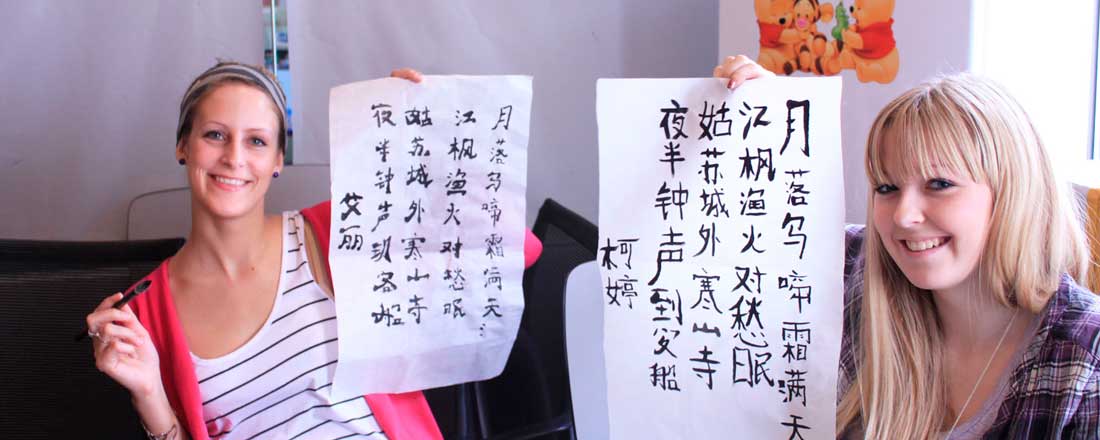 月落乌啼霜满天
江枫渔火对愁眠
姑苏城外寒山寺
夜半钟声到客船
艾丽
月落乌啼霜满天
江枫渔火对愁眠
姑苏城外寒山寺
夜半钟声到客船
柯婷